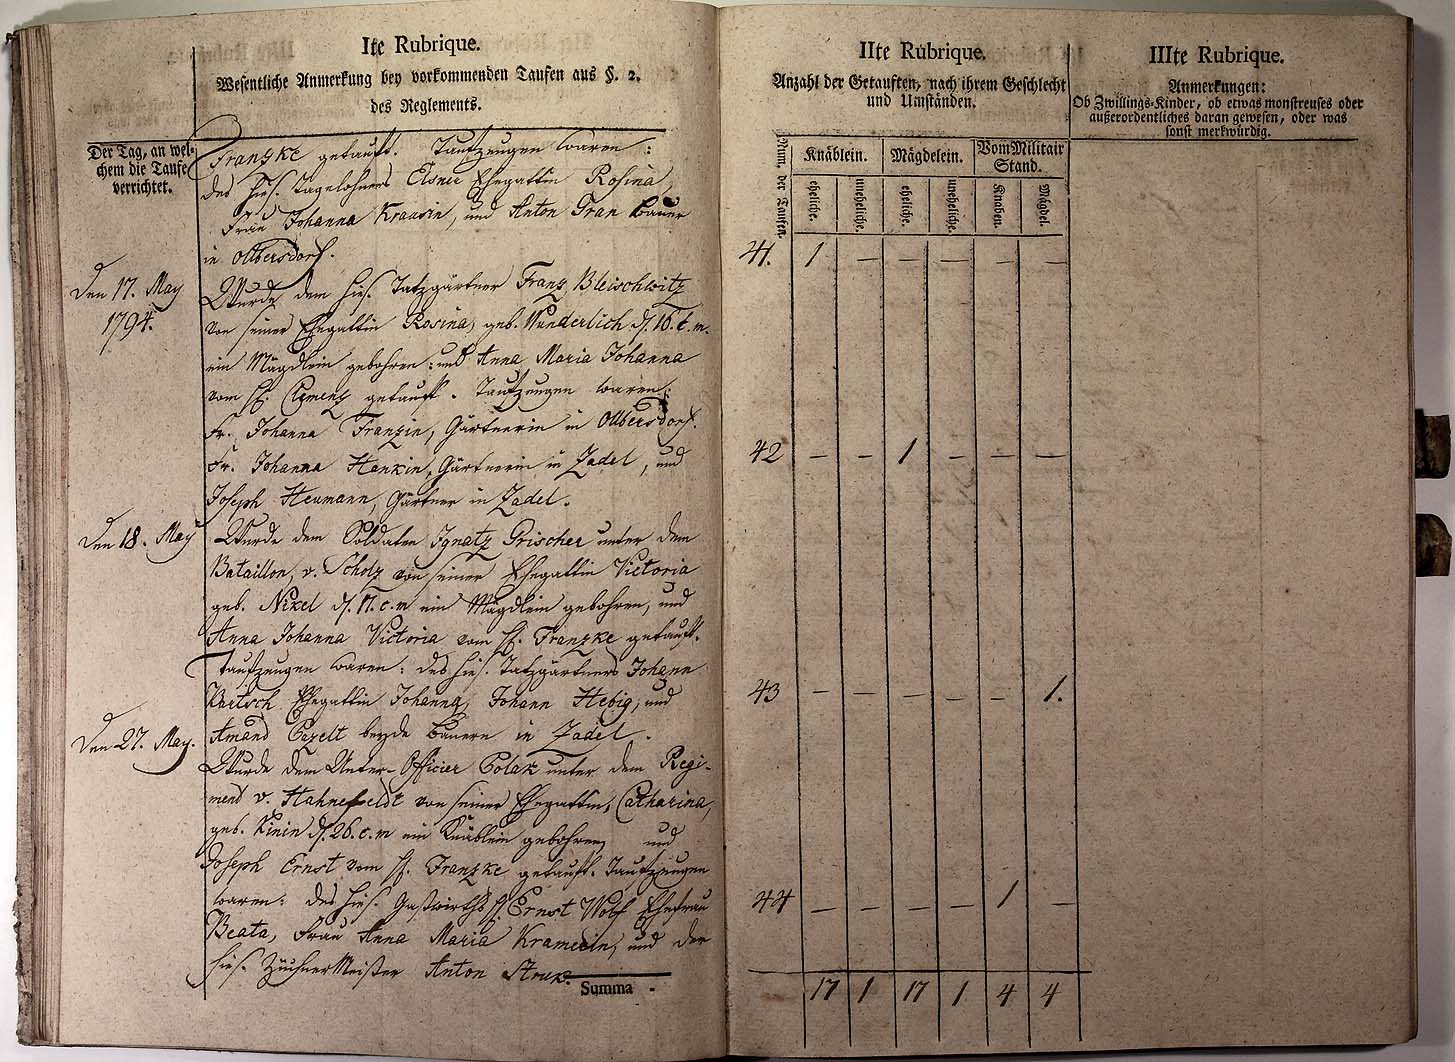 Ite Rubrique.
Wesentliche Anmerkung bey vorkommenden Taufen aus §. 2.
des Reglements.
Der Tag, an wel-
chem die Taufe
verrichtet.
Franzke getauft. Taufzeugen waren:
des hies. Tagelöhners Elsner Ehegattin Rosina,
Frau Johanna Krausin, und Anton Gran Bauer
in Olbersdorf.
Den 17. May
1794.
Wurde dem hies. Tatzgärtner Franz Bleischwitz
von seiner Ehegattin Rosina, geb. Wunderlich d. 16. c. m.
ein Mägdlein gebohren: und Anna Maria Johanna
vom H. Clemenz getauft. Taufzeugen waren:
Fr. Johanna Franzin, Gärtnerin in Olbersdorf.
Fr. Johanna Hankin, Gärtnerin in Zadel, und
Joseph Heumann, Gärtner in Zadel.
Den 18. May
Wurde dem Soldaten Ignatz Grischer unter dem
Bataillon, v. Scholz von seiner Ehegattin Victoria
geb. Nixel d. 17. c. m ein Mägdlein gebohren, und
Anna Johanna Victoria vom H. Franzke getauft.
Taufzeugen waren: des hies. Tatzgärtners Johann
Ehegattin Johanna, Johann Hebig, und
Amand beyde Bauern in Zadel.
Den 27. May.
Wurde dem Unter-Officier Polak unter dem Regi-
ment v. Hahnefeldt von seiner Ehegattin, Catharina,
geb. Kinin d. 26. c. m ein Knäblein gebohren, und
Joseph Ernst vom H. Franzke getauft. Taufzeugen
waren: des hies. Gastwirths H. Ernst Wolf Ehefrau
Beata, Frau Anna Maria Kramerin, und der
hies. Züchner Meister Anton
Summa
IIte Rubrique.
Anzahl der Getauften, nach ihrem Geschlecht
und Umständen.
Num. der Taufen.
Knäblein.
Mägdelein.
Vom Militair
Stand.
eheliche.
uneheliche.
eheliche.
uneheliche.
Knaben.
Mägdel.
41. 1 — — — — —
42 — — 1 — — —
43 — — — — — 1.
44 — — — — 1 —
17 1 17 1 4 4
IIIte Rubrique.
Anmerkungen:
Ob Zwillings-Kinder, ob etwas monstreuses oder
außerordentliches daran gewesen, oder was
sonst merkwürdig.